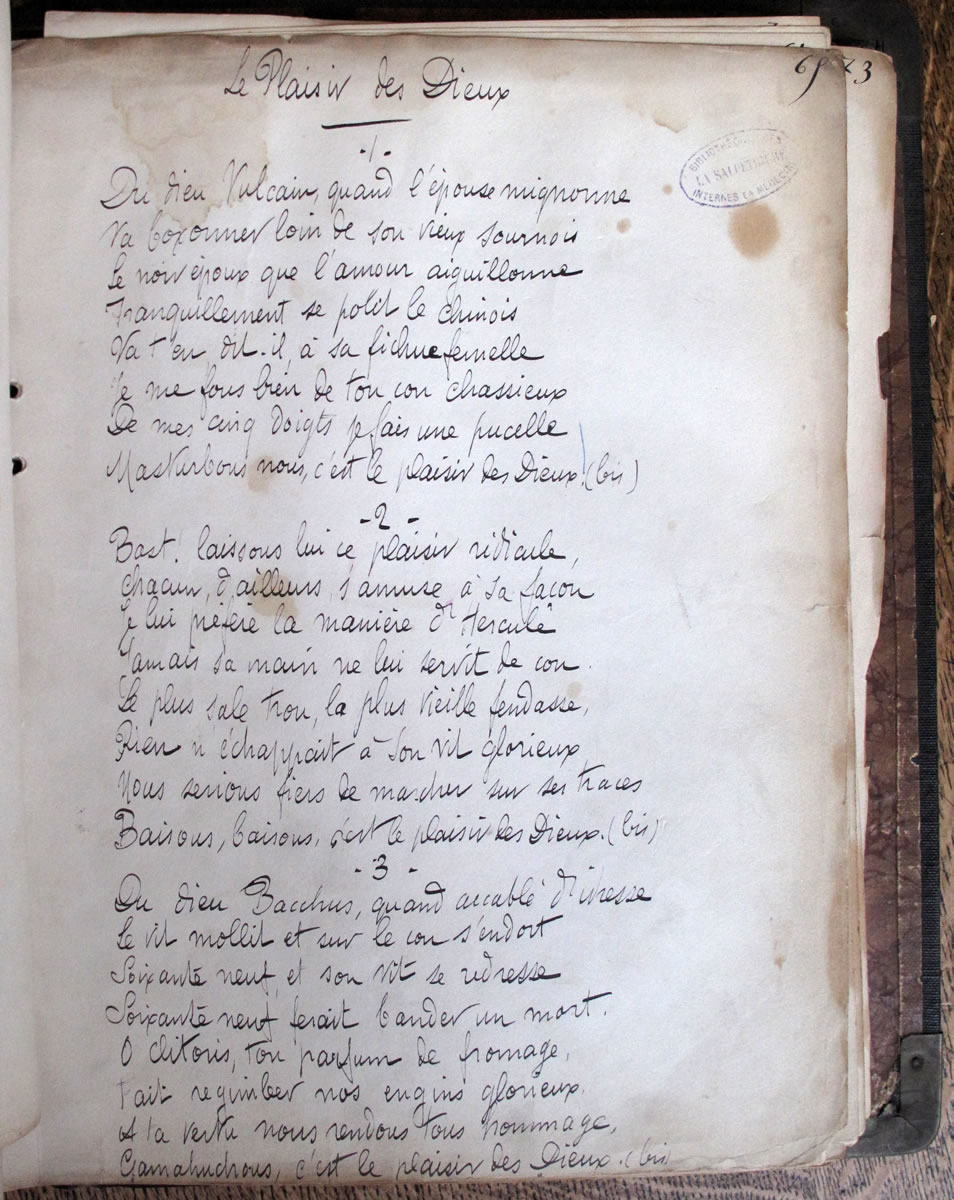 Le Plaisir des Dieux
73
BIBLIOTHÈQUE DES
LA SALPÊTRIÈRE
INTERNES EN MÉDECINE
-1-
Du dieu Vulcain, quand l'épouse mignonne
Va boxonner loin de son vieux sournois
Le noir époux que l'amour aiguillonne
Tranquillement se polit le chinois
Va t'en dit-il, à sa fichue femelle
Je me fous bien de ton con chassieux
De mes cinq doigts je fais une pucelle
Masturbons nous, c'est le plaisir des Dieux! (bis)
-2-
Bast! laissons lui ce plaisir ridicule,
Chacun, d'ailleurs, s'amuse à sa façon
Je lui préfère la manière d'Hercule
Jamais sa main ne lui servit de con.
Le plus sale trou, la plus vieille fendasse,
Rien n'échappait à son vit glorieux
Nous serions fiers de marcher sur ses traces
Baisons, baisons, c'est le plaisir des Dieux. (bis)
-3-
Du dieu Bacchus, quand accablé d'ivresse
Le vit mollit et sur le con s'endort
Soixante neuf, et son vit se redresse
Soixante neuf ferait bander un mort.
O clitoris, ton parfum de fromage,
Fait regimber nos engins glorieux.
A ta vertu nous rendons tous hommage,
Gamahuchons, c'est le plaisir des Dieux. (bis)